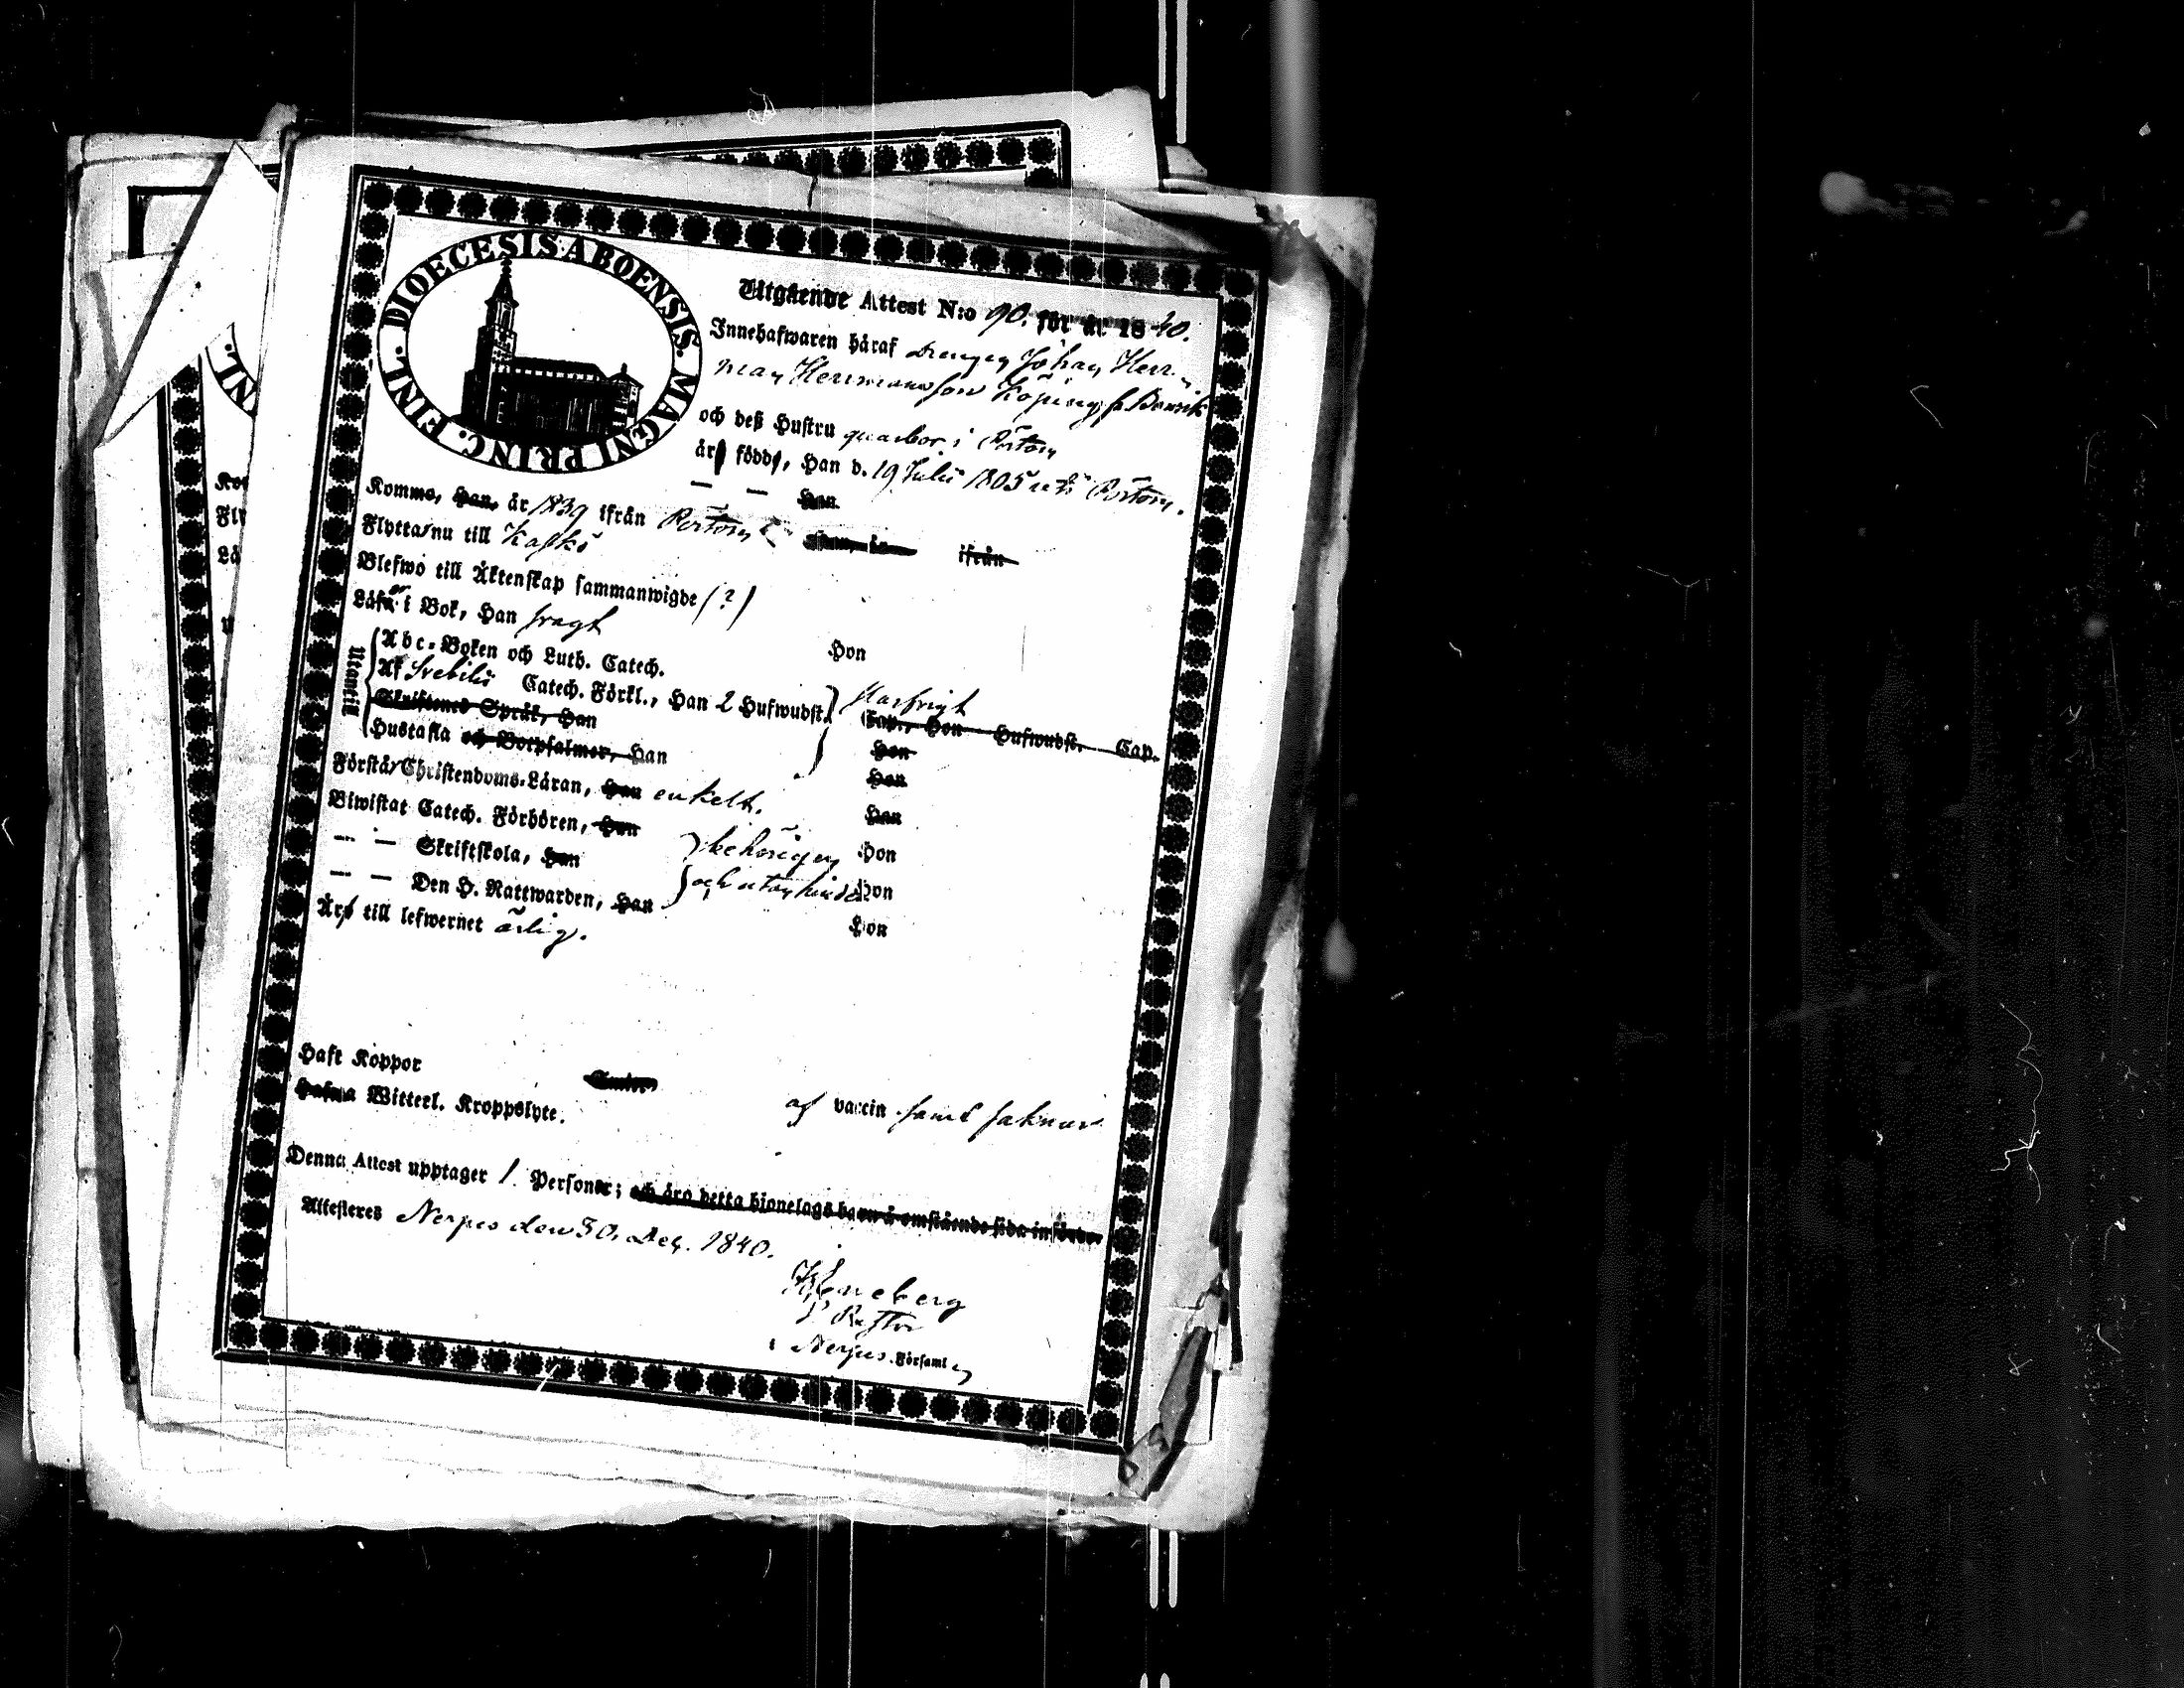 DIOECESIS ABOENSIS. MAGNI PRINC. FINL.
Utgående Attest N:o 90. för år 1840.
Innehafwaren håraf Drengen Johan Herr-
man Herrmansson Köping fr.
och deß Hustru quarbor i Pörtom
är födde, Han d. 19 Julii 1805 uti Pörtom.
— — Hon
Komme, Han, år 1839 ifrån Pörtom Hon, år ifrån
Flytta nu till Kaskö
Blefwo till Äktenskap sammanwigde (?)
Läser i Bok, Han svagt Hon
Utantill
Abc-Boken och Luth. Catech.
Af Svebilii Catech. Förkl., Han 2 Hufwudst. Cap., Hon Hufwudst. Cap.
Skriftenes Språk, Han Hon
Hustafla och Botpsalmer, Han Hon
Förstår Christendoms-Läran, Han enkelt. Hon
Biwistat Catech. Förhören, Han Hon
— — Skriftskola, Han behörigen Hon
— — Den H. Nattwarden, Han och utan hinder Hon
Äro till lefwernet ärlig.
Haft Koppor
Hafwa Witterl. Kroppslyte. af vaccin samt saknar
Denna Attest upptager 1 Personer; och äro detta hjonelags barn å omstående sida införde
Attesteres Nerpes den 30. Dec. 1840.
Nerpes Församl